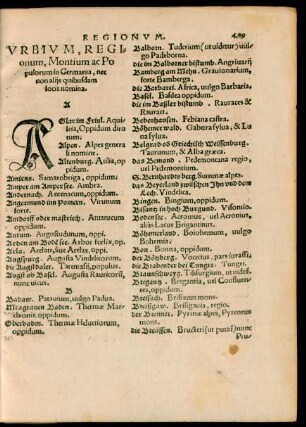 REGIONVM.
VRBIVM, REGI
onum, Montium ac Po
pulorum in Germania, nec
non alijs quibusdam
locis nomina.
A
AGlar im Friul. Aqui
leia, Oppidum diru
tum.
Alpen. Alpes genera
li nomine.
Altenburg. Aulia, op
pidum.
Amiens. Samarobriga, oppidum;
Amper am Amper see. Ambra.
Andernach. Antenacum, oppidum.
Angermund im Pomern. Virunum
forte.
Antdorff oder mastrich. Atuatucum
oppidum.
Autum. Augustudunum, oppi.
Arben am Bodẽ see. Arbor felix, op.
Arla. Arelate, siue Arelas, oppi.
Augspurg. Augusta Vindelicorum.
die Augsthaler. Taurusci, populus.
Augst ob Basel. Augusta Rauricum,
oppidum.
B
Badaw. Patauium, vulgo Padua.
Marggrauen Baden. Thermæ Mar-
chionis, oppidum.
Oberbaden. Thermæ Heluetiorum,
oppidum.
Balborn. Tuderium (ut uidmur) uul
go Padelborna.
die im Balborner bistumb. Angriuarij
Bamberg am Meyn. Grauionarium,
forte Bamberga.
die Barbarei. Africa, uulgo Barbaria,
Basel. Basilea oppidum.
die im Baßler bistumb. Rauraces &
Raurici.
Bebenhausen. Fabiana castra.
Böhemerwald. Gabreta sylua, & Lu
na sylua.
Belgrad oð Griechisch Weissenburg.
Taurunum, & Alba græca.
das Bemond. Pedemoncana regio,
uel Pedemontium.
S. Bernhardts berg. Summæ alpes.
das Beyerland zwischen Ihn vnd dem
Lech. Vindelica.
Bingen. Bingium, oppidum.
Bisantz in hoch Burgund. Visontio.
Bodensee. Acronus, uel Acronius,
alias Lacus Brigantinus.
Böhemerland. Boiohemum, uulgo
Bohemia.
Bon. Bonna, oppidum.
der Bönberg. Vocetius, pars Iurassi.
die Brabander bei Tungre. Tungri.
Braunschweyg. Tilsurgium, ut uidet.
Bregantz. Bregantia, uel Constuen-
tera, oppidum.
Breisach. Brisiacus mons.
Breisgaw. Brisignoia, regio.
der Brenner. Pyrenæ alpes, Pyrenæus
mons.
die Breüssen. Bructeri (ut putāt) nunc
Pru-